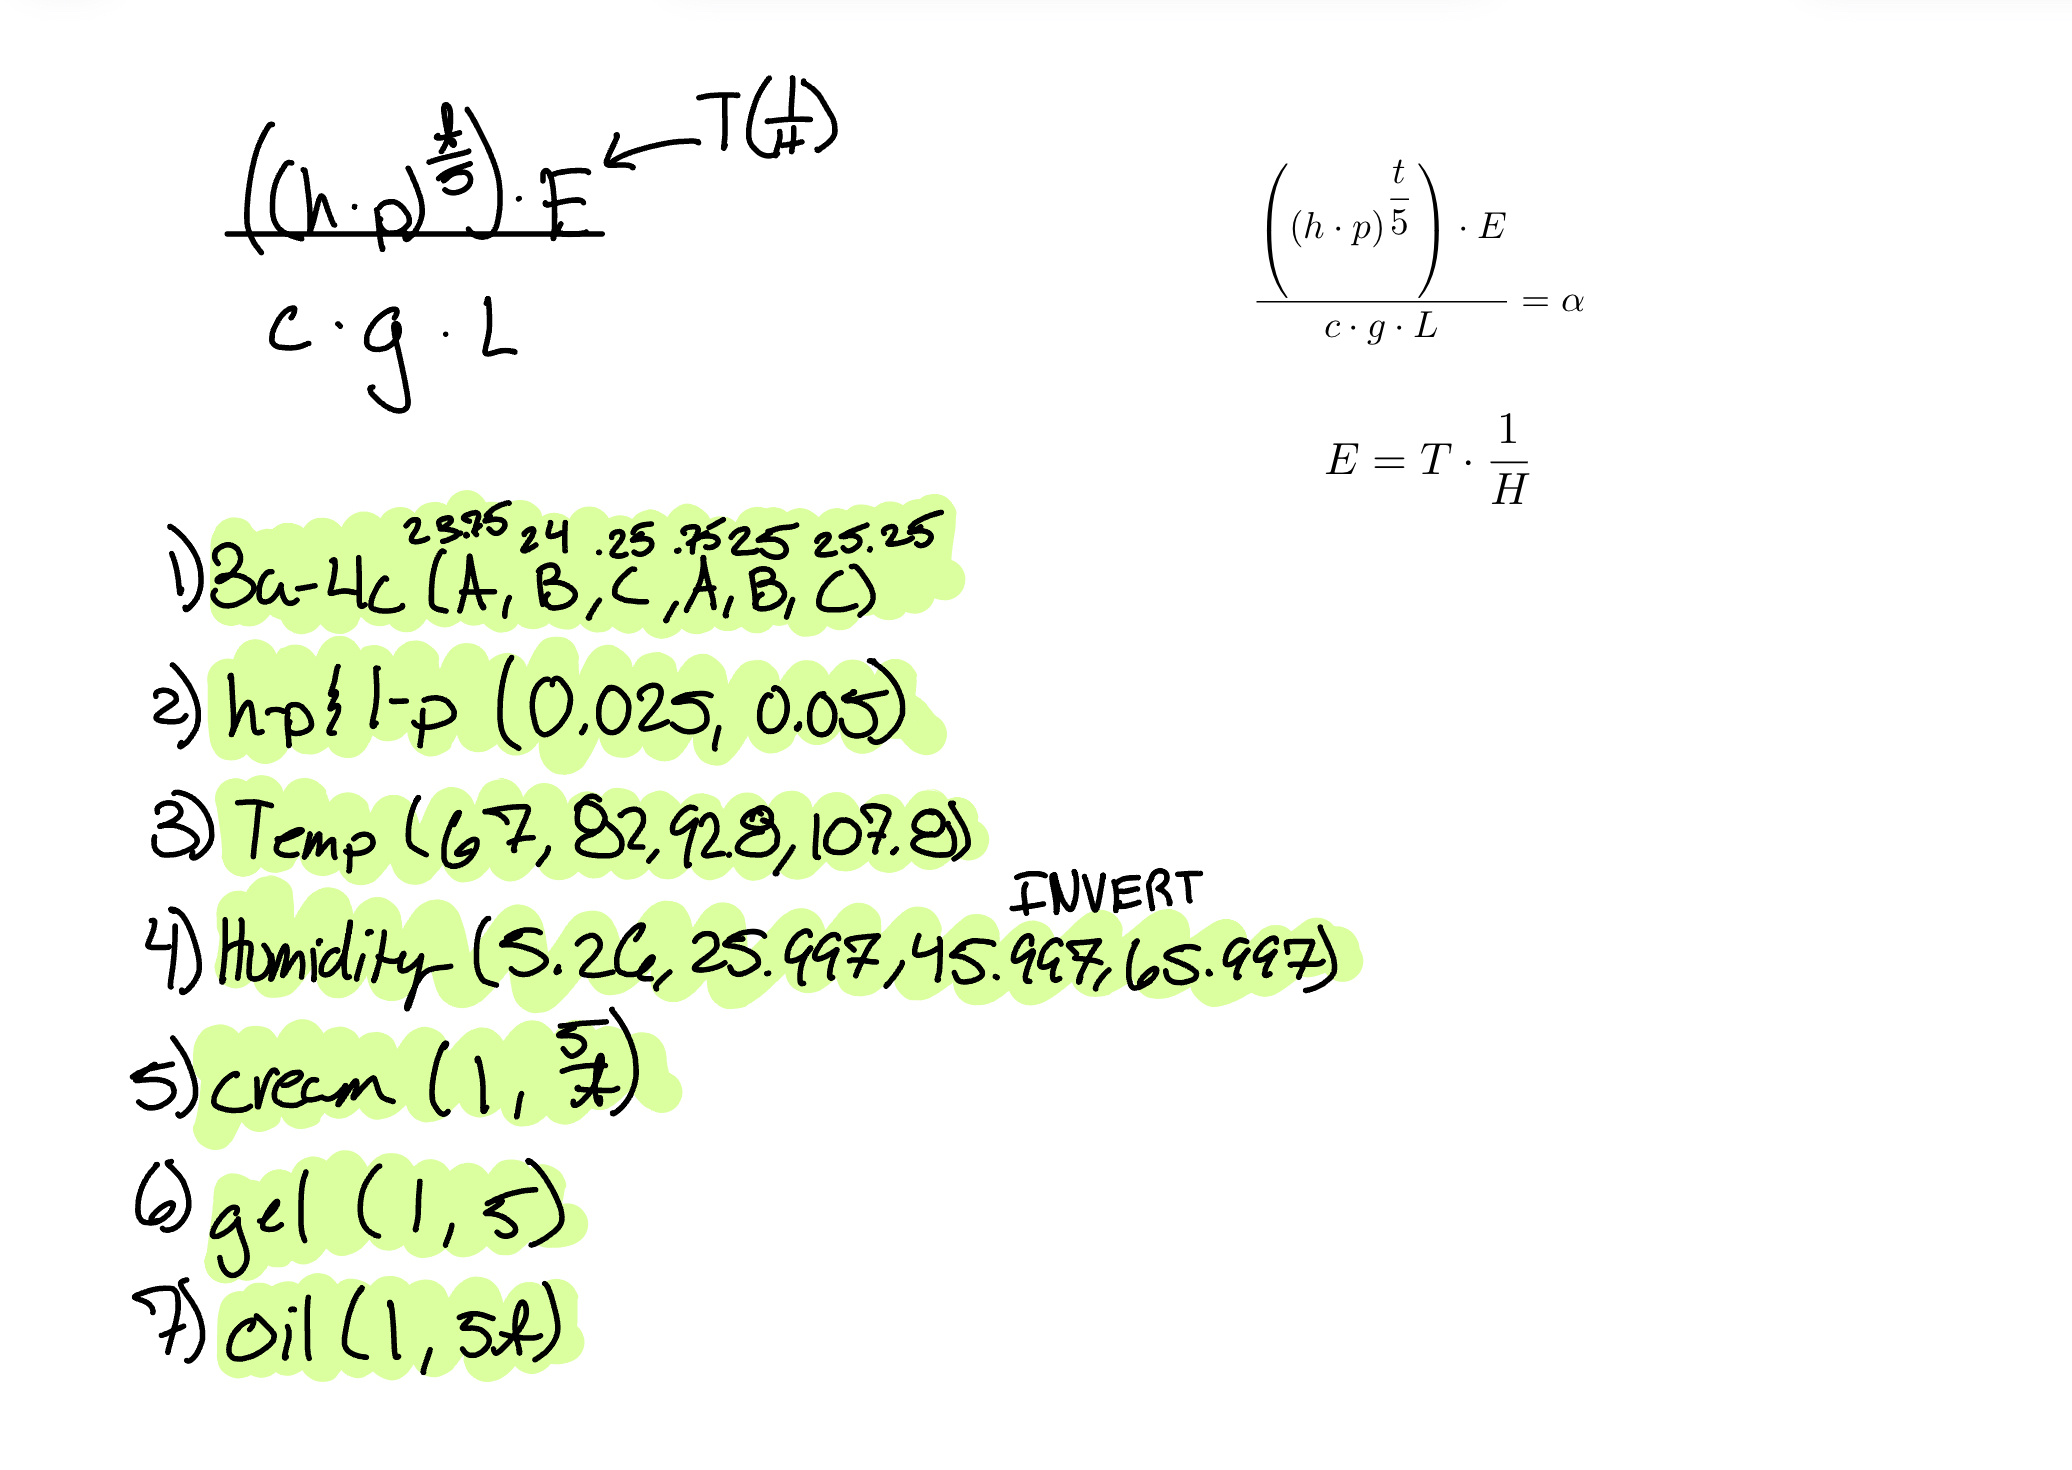 ((h·p)^(t/5))·E ← T(1/H)
c·g·L
((h · p)^(t/5)) · E
c · g · L = α
E = T · 1/H
23.75 24 .25 .75 25 25.25
1) 3a-4c (A, B, C, A, B, C)
2) h-p & l-p (0.025, 0.05)
3) Temp (67, 82, 92.8, 107.8)
INVERT
4) Humidity (5.26, 25.997, 45.997, 65.997)
5) cream (1, 5/t)
6) gel (1, 5)
7) oil (1, 5t)